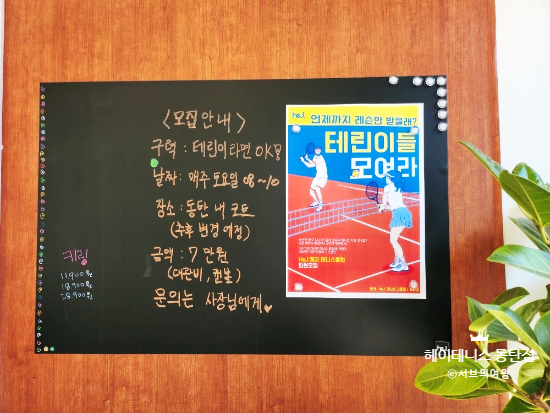 <모집안내>
구력 : 테린이라면 OK
날짜 : 매주 토요일 08~10
장소 : 동탄 내 코트
(추후 변경 예정)
금액 : 7만원
(대관비, 캔볼)
문의는 사장님에게♥
키링
11,900원
18,900원
HeJ.
언제까지 레슨만 받을래?
테린이들
모여라
회원모집
헤이테니스 동탄점
©서브의여왕